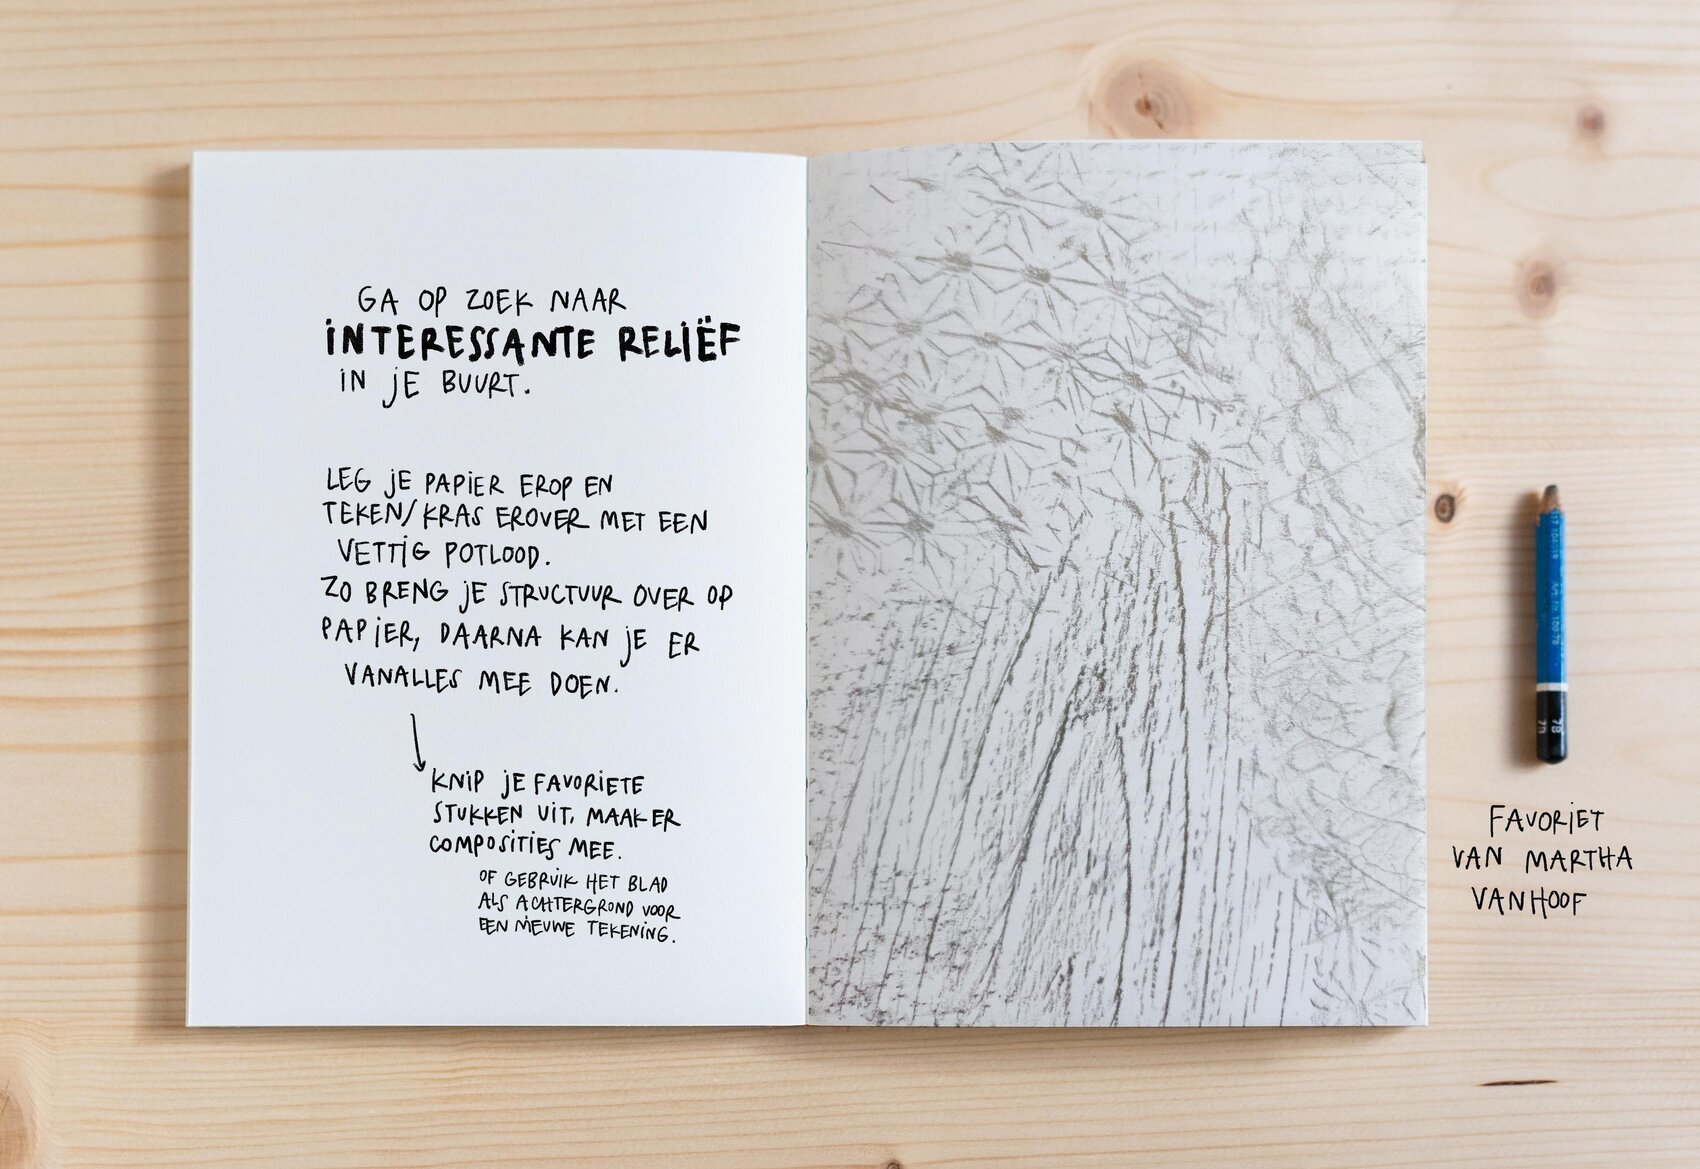 GA OP ZOEK NAAR
INTERESSANTE RELIËF
IN JE BUURT.
LEG JE PAPIER EROP EN
TEKEN/KRAS EROVER MET EEN
VETTIG POTLOOD.
ZO BRENG JE STRUCTUUR OVER OP
PAPIER, DAARNA KAN JE ER
VANALLES MEE DOEN.
KNIP JE FAVORIETE
STUKKEN UIT, MAAK ER
COMPOSITIES MEE.
OF GEBRUIK HET BLAD
ALS ACHTERGROND VOOR
EEN NIEUWE TEKENING.
7B
FAVORIET
VAN MARTHA
VANHOOF